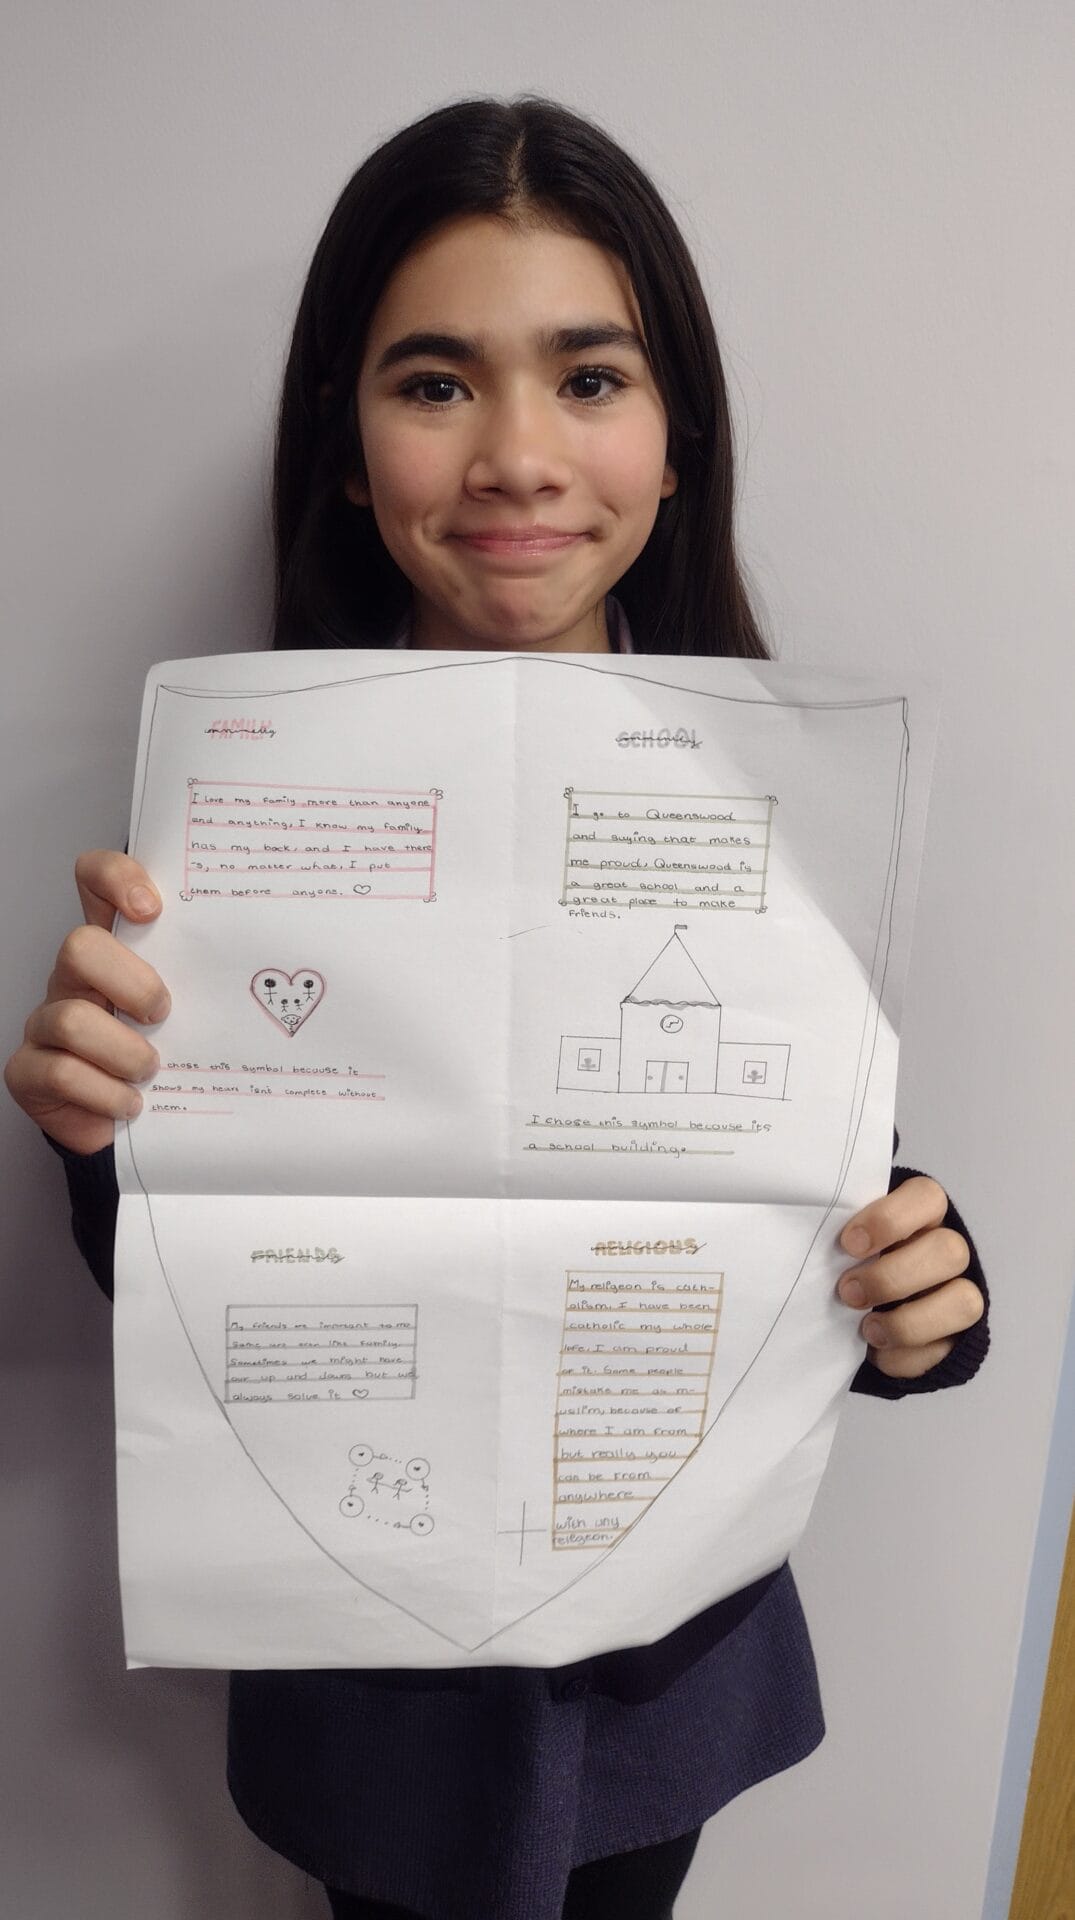 FAMILY
community
I love my family more than anyone
and anything, I know my family
has my back, and I have there
-s, no matter what, I put
them before anyone. ♡
chose this symbol because it
shows my heart isnt complete without
them.
SCHOOL
community
I go to Queenswood
and saying that makes
me proud, Queenswood is
a great school and a
great place to make
friends.
I chose this symbol because its
a school building.
FRIENDS
community
My friends are important to me
Some are even like family.
Sometimes we might have
our up and downs but we
always solve it ♡
RELIGIOUS
community
My religeon is cath-
olism, I have been
catholic my whole
life, I am proud
of it. Some people
mistake me as m-
uslim, because of
where I am from
but really you
can be from
anywhere
with any
religeon.